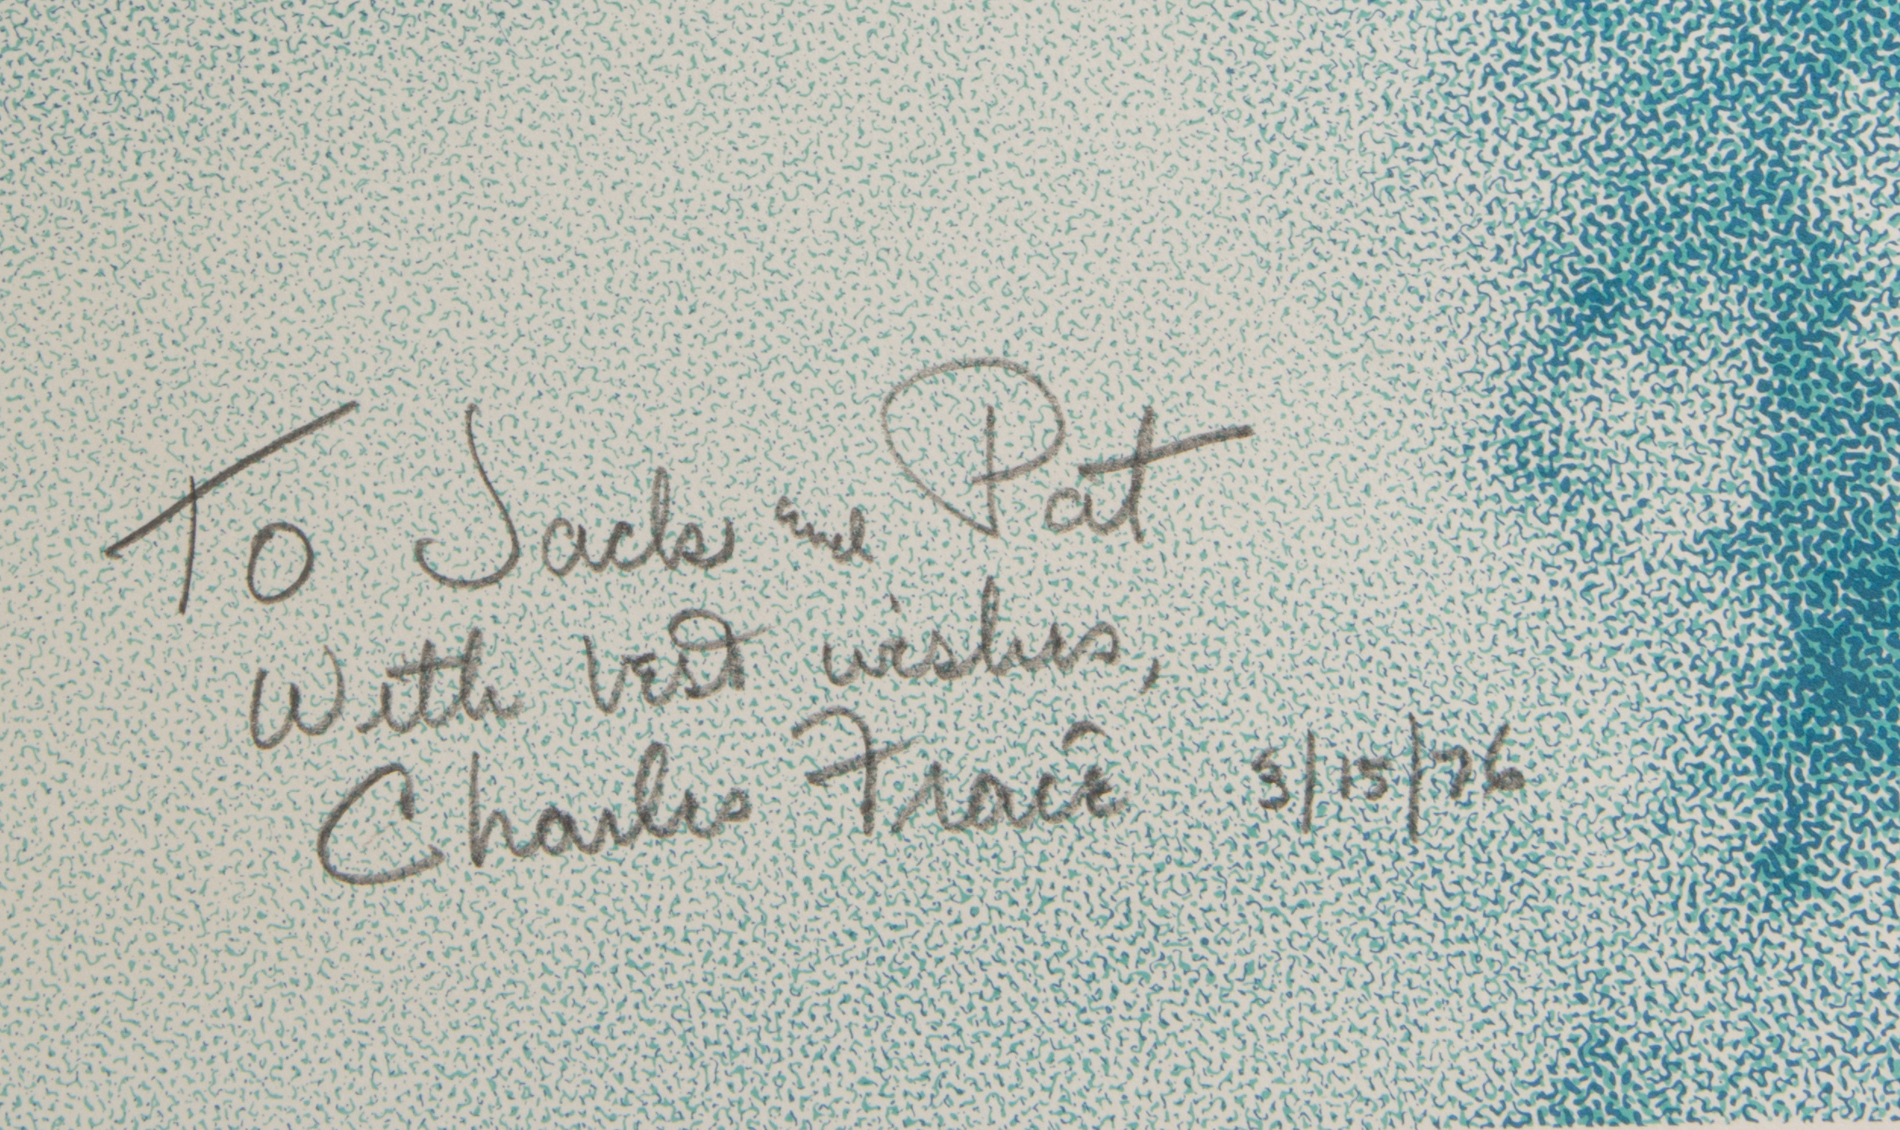 To Jack and Pat
With best wishes,
Charles Fracé 3/15/76